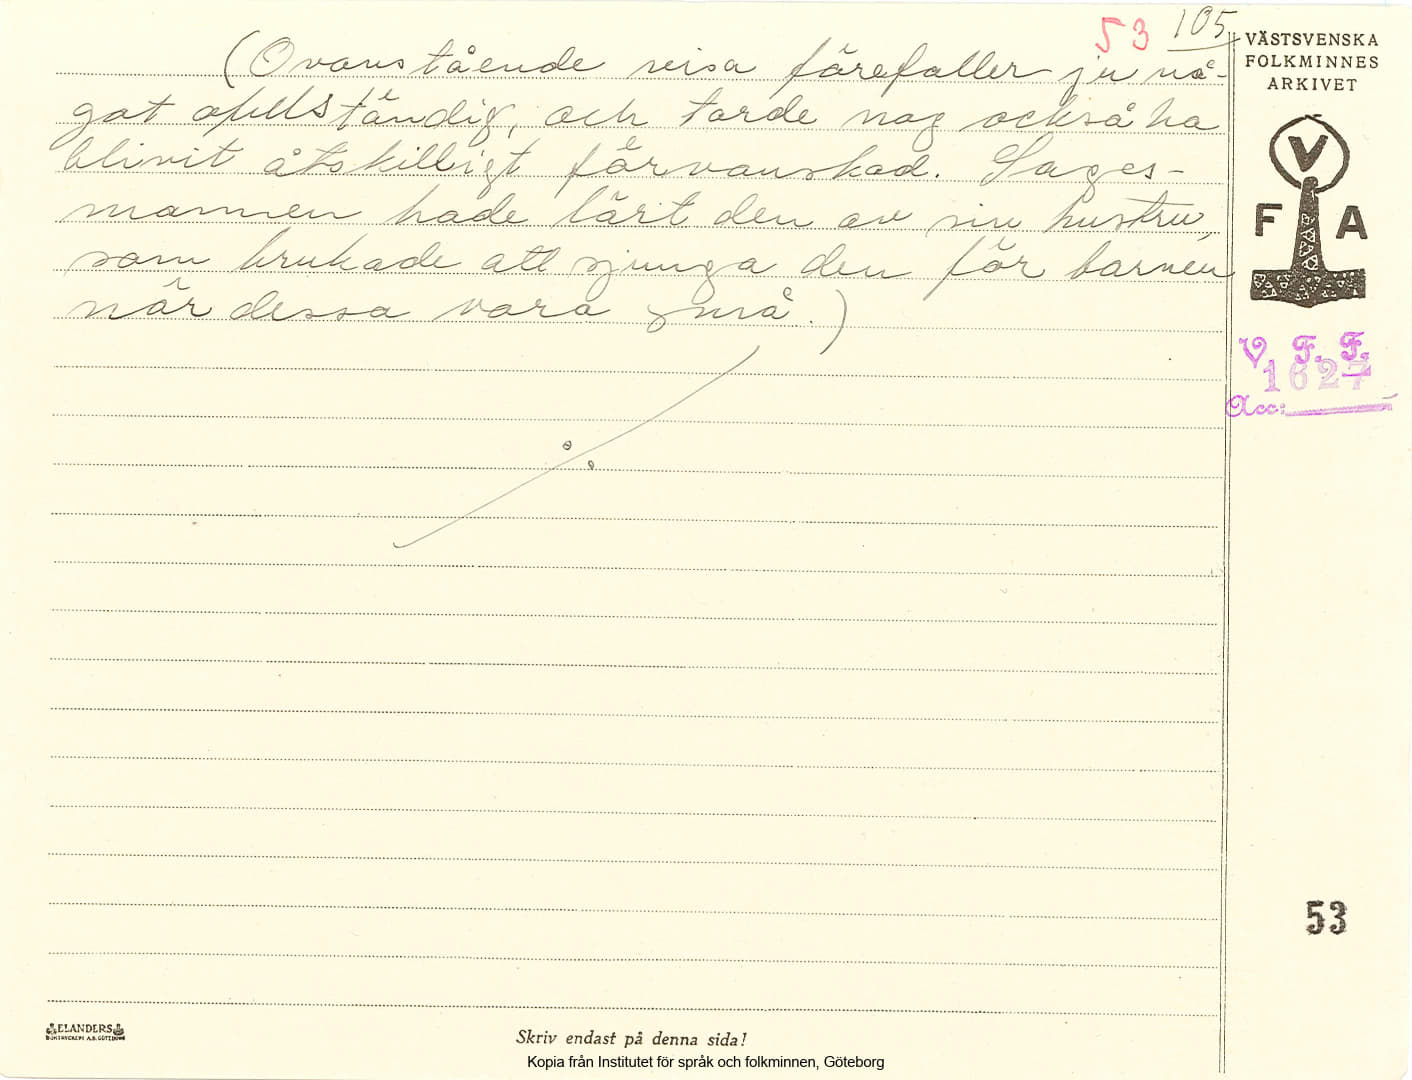 53 105
(Ovanstående visa förefaller ju nå-
got ofullständig, och torde nog också ha
blivit åtskilligt förvanskad. Sages-
mannen hade lärt den av sin hustru,
som brukade att sjunga den för barnen
när dessa voro små.)
VÄSTSVENSKA
FOLKMINNES
ARKIVET
V
F A
V. F. F.
1627
Acc:
53
ELANDERS
BOKTRYCKERI A.B. GÖTEBORG
Skriv endast på denna sida!
Kopia från Institutet för språk och folkminnen, Göteborg